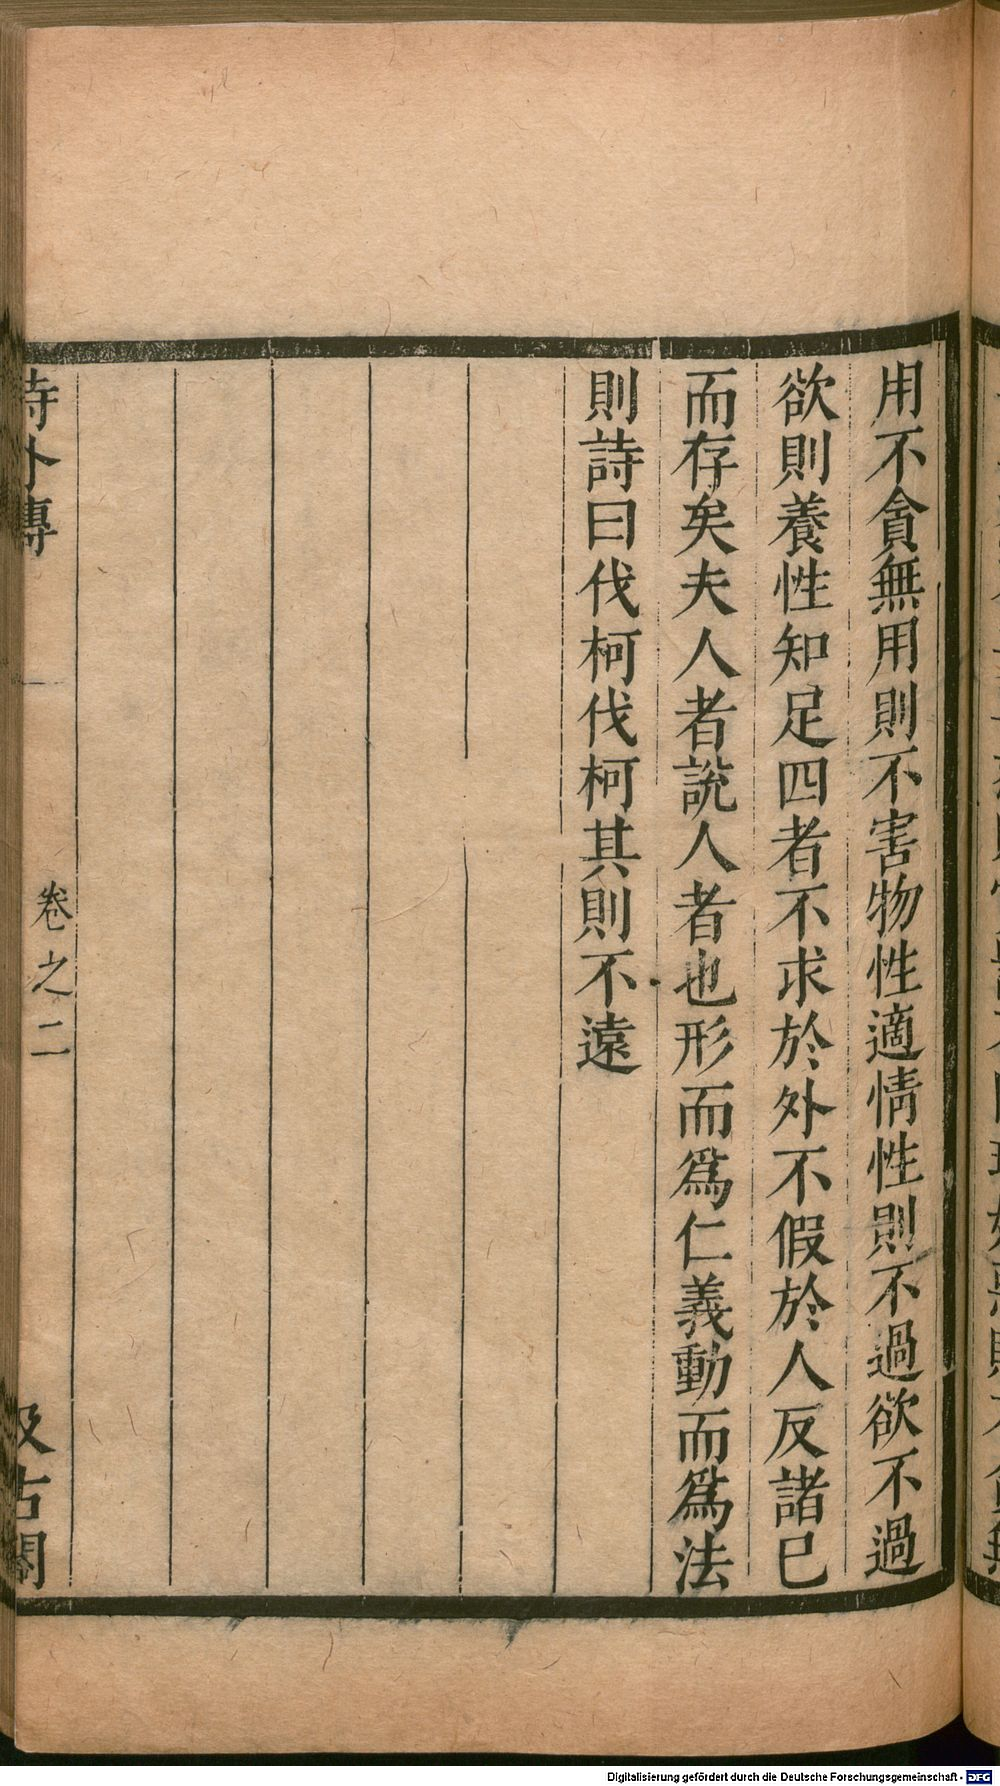 用不貪無用則不害物性適情性則不過欲不過
欲則養性知足四者不求於外不假於人反諸已
而存矣夫人者說人者也形而爲仁義動而爲法
則詩曰伐柯伐柯其則不遠
詩外傳
卷之二
汲古閣
Digitalisierung gefördert durch die Deutsche Forschungsgemeinschaft - DFG